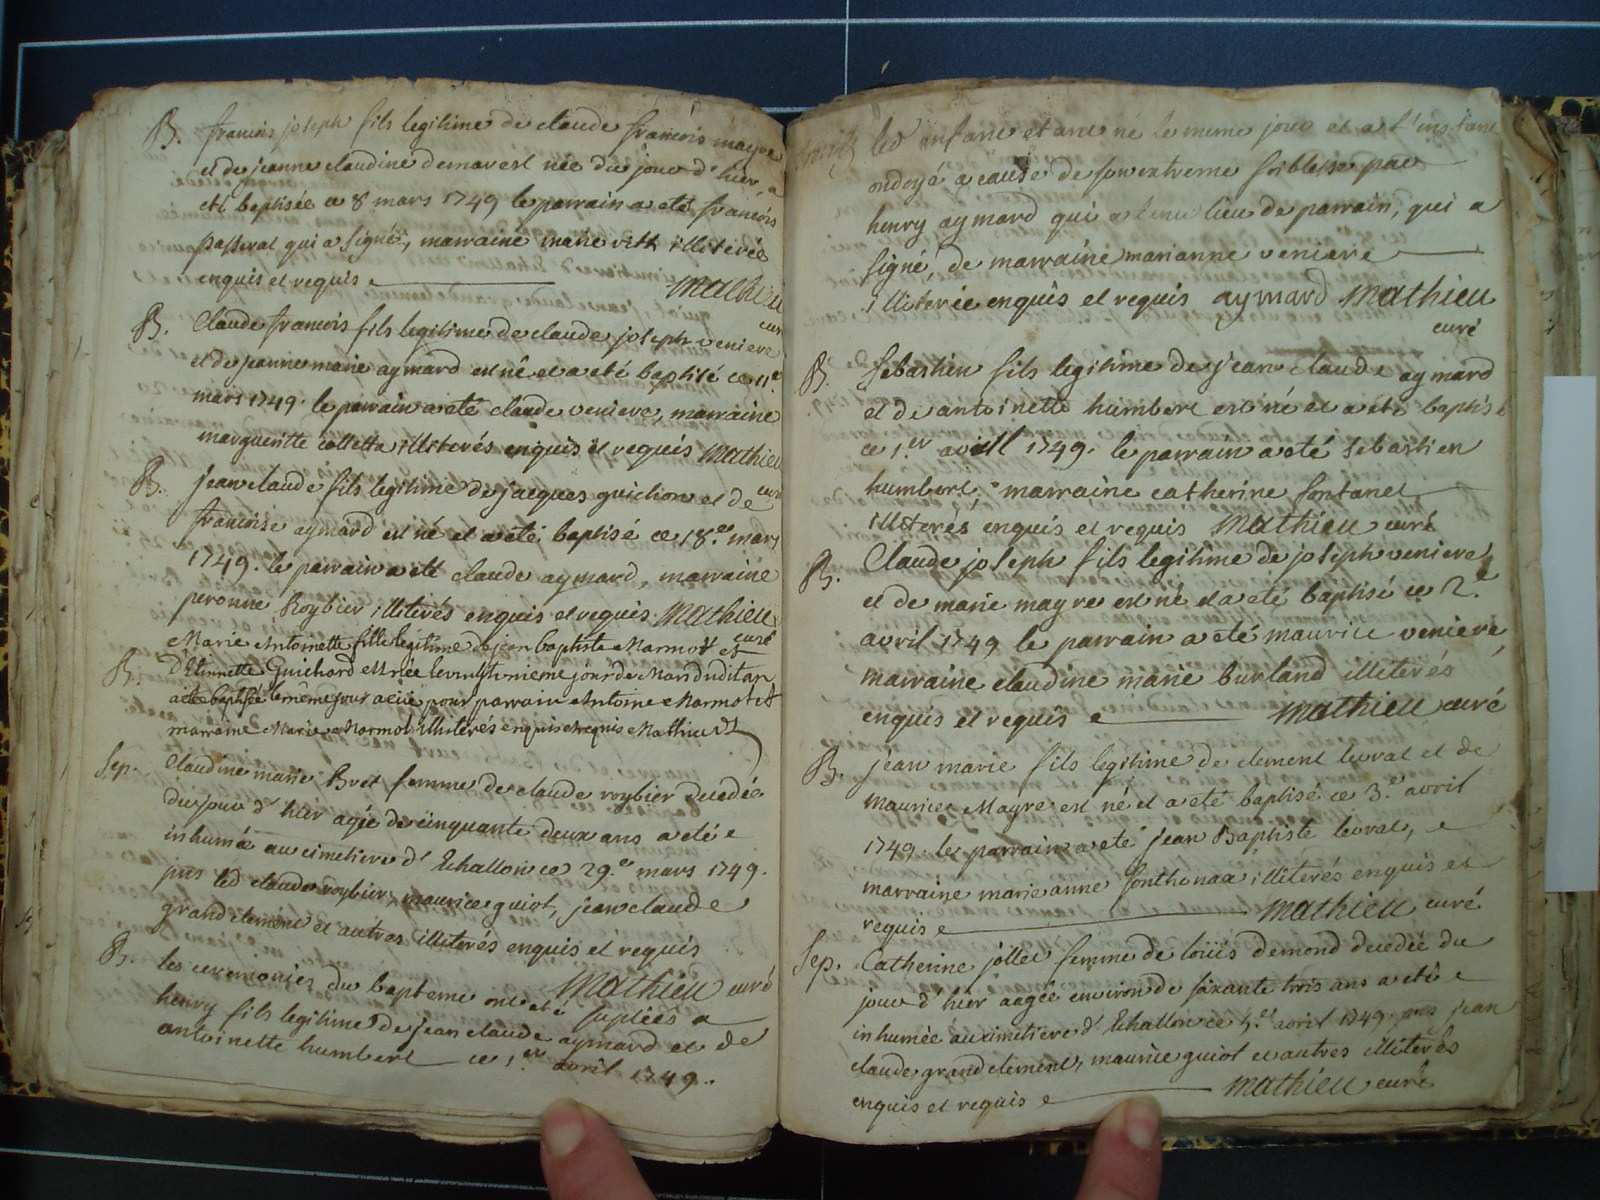 B. francois joseph fils legitime de claude francois mayre
et de jeanne claudine demarest née du jour d'hier, a
eté baptisée ce 8 mars 1749 le parrain a eté francois
passerat qui a signé, marraine marie vett illiterée
enquis et requis Mathieu
curé
B. Claude francois fils legitime de claude joseph veniere
et de jeanne marie aymard est né et a eté baptisé ce 11e
mars 1749. le parrain a eté claude veniere, marraine
margueritte colletta illiterés enquis et requis Mathieu
curé
B. jean claude fils legitime de jacques guichon et de
francoise aymard est né et a eté baptisé ce 18e mars
1749. le parrain a eté claude aymard, marraine
peronne Roybier illiterés enquis et requis Mathieu
curé
Marie Antoinette fille legitime de jean baptiste Marmot et
B. D'Etiennette Guichard est née le jour de Mars dudit an
a eté baptisé le même jour a eü pour parrain Antoine Marmot et
marraine Marie Marmot illiterés enquis et requis Mathieu
Sep. Claudine marie Bret femme de claude roybier decedée
du jour d'hier agée de cinquante deux ans a eté
inhumée au cimetiere d'Echallon ce 29e mars 1749.
pns led claude roybier, maurice guiot, jean claude
grand clement et autres illiterés enquis et requis
Mathieu curé
B. les ceremonies du bapteme ont eté suplées a
henry fils legitime de jean claude aymard et de
antoinette humbert ce 1.er avril 1749.
led enfant etant né le meme jour et a l'instant
ondoyé a cause de son extreme foiblesse par
henry aymard qui a tenu lieu de parrain, qui a
signé, de marraine marianne veniere
illiterée enquis et requis aymard Mathieu
curé
B. Sebastien fils legitime de jean claude aymard
et de antoinette humbert est né et a eté baptisé
ce 1.er avill 1749. le parrain a eté sebastien
humbert, marraine catherine fontanet
illiterés enquis et requis Mathieu curé
B. Claude joseph fils legitime de joseph veniere
et de marie mayre est né et a eté baptisé ce 2.e
avril 1749 le parrain a eté maurice veniere,
marraine claudine marie burland illiterés
enquis et requis Mathieu curé
B. jean marie fils legitime de clement levrat et de
maurice Mayre est né et a eté baptisé ce 3.e avril
1749. le parrain a eté jean Baptiste levrat,
marraine marie anne fonthonax illiterés enquis et
requis Mathieu curé
Sep. Catherine jollet femme de loüis demond decedée du
jour d'hier aagée environ de soixante trois ans a eté
inhumée au cimetiere d'Echallon ce 4.e avril 1749. pns jean
claude grand clement, maurice guiot et autres illiterés
enquis et requis Mathieu curé